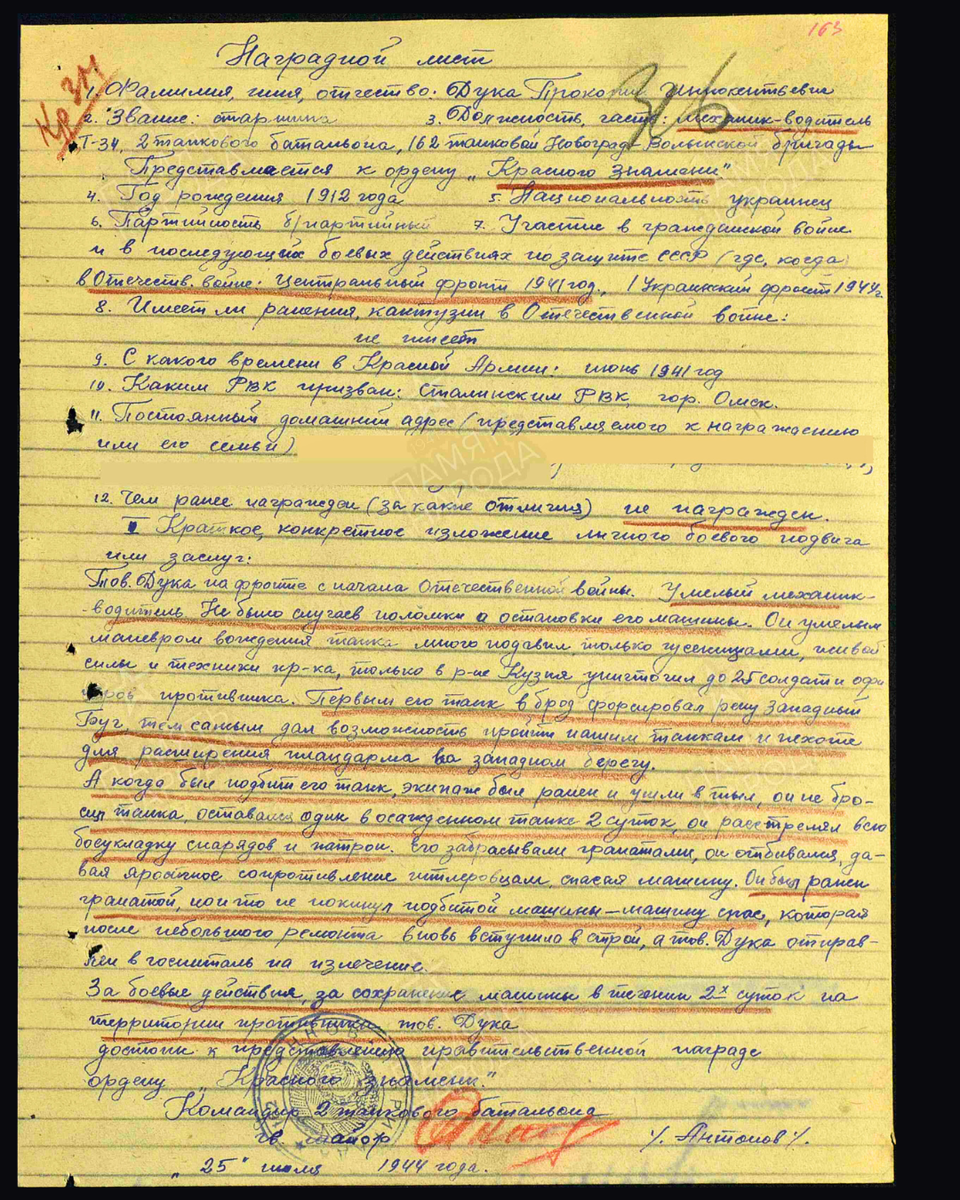 163
Наградной лист
Кр ЗН
1. Фамилия, имя, отчество: Дука Прокопий Иннокентьевич
2. Звание: старшина 3. Должность, часть: механик-водитель
Т-34, 2 танкового батальона, 162 танковой Новоград-Волынской бригады
Представляется к ордену „Красного Знамени"
4. Год рождения 1912 года 5. Национальность украинец
6. Партийность б/партийный 7. Участие в гражданской войне
и в последующих боевых действиях по защите СССР (где, когда)
в Отечеств. войне: Центральный фронт 1941 год., 1 Украинский фронт 1944г.
8. Имеет ли ранения, контузии в Отечественной войне:
не имеет
9. С какого времени в Красной Армии: июнь 1941 год
10. Каким РВК призван: Сталинским РВК, гор. Омск.
11. Постоянный домашний адрес (представляемого к награждению
или его семьи)
12. Чем ранее награжден (за какие отличия) не награжден.
Краткое, конкретное изложение личного боевого подвига
или заслуг:
Тов. Дука на фронте с начала Отечественной войны. Умелый механик-
-водитель. Не было случаев поломки а остановки его машины. Он умелым
маневром вождения танка много подавил, только гусеницами, живой
силы и техники пр-ка, только в р-не Кузня уничтожил до 25 солдат и офи
церов противника. Первым его танк в брод форсировал реку Западный
Буг, тем самым дал возможность пройти нашим танкам и пехоте
для расширения плацдарма на западном берегу.
А когда был подбит его танк, экипаж был ранен и ушли в тыл, он не бро-
сил танка, оставаясь один в осажденном танке 2 суток, он расстрелял всю
боеукладку снарядов и патрон. Его забрасывали гранатами, он отбивался, да-
вая яростное сопротивление гитлеровцам, спасая машину. Он был ранен
гранатой, но и то не покинул подбитой машины – машину спас, которая
после небольшого ремонта вновь вступила в строй, а тов. Дука отправ-
лен в госпиталь на излечение.
За боевые действия, за сохранение машины в течении 2х суток на
территории противника тов. Дука
достоин к представлению правительственной награде
ордену „Красного знамени."
Командир 2 танкового батальона
гв. майор /. Антонов /.
„25" июля 1944 года.